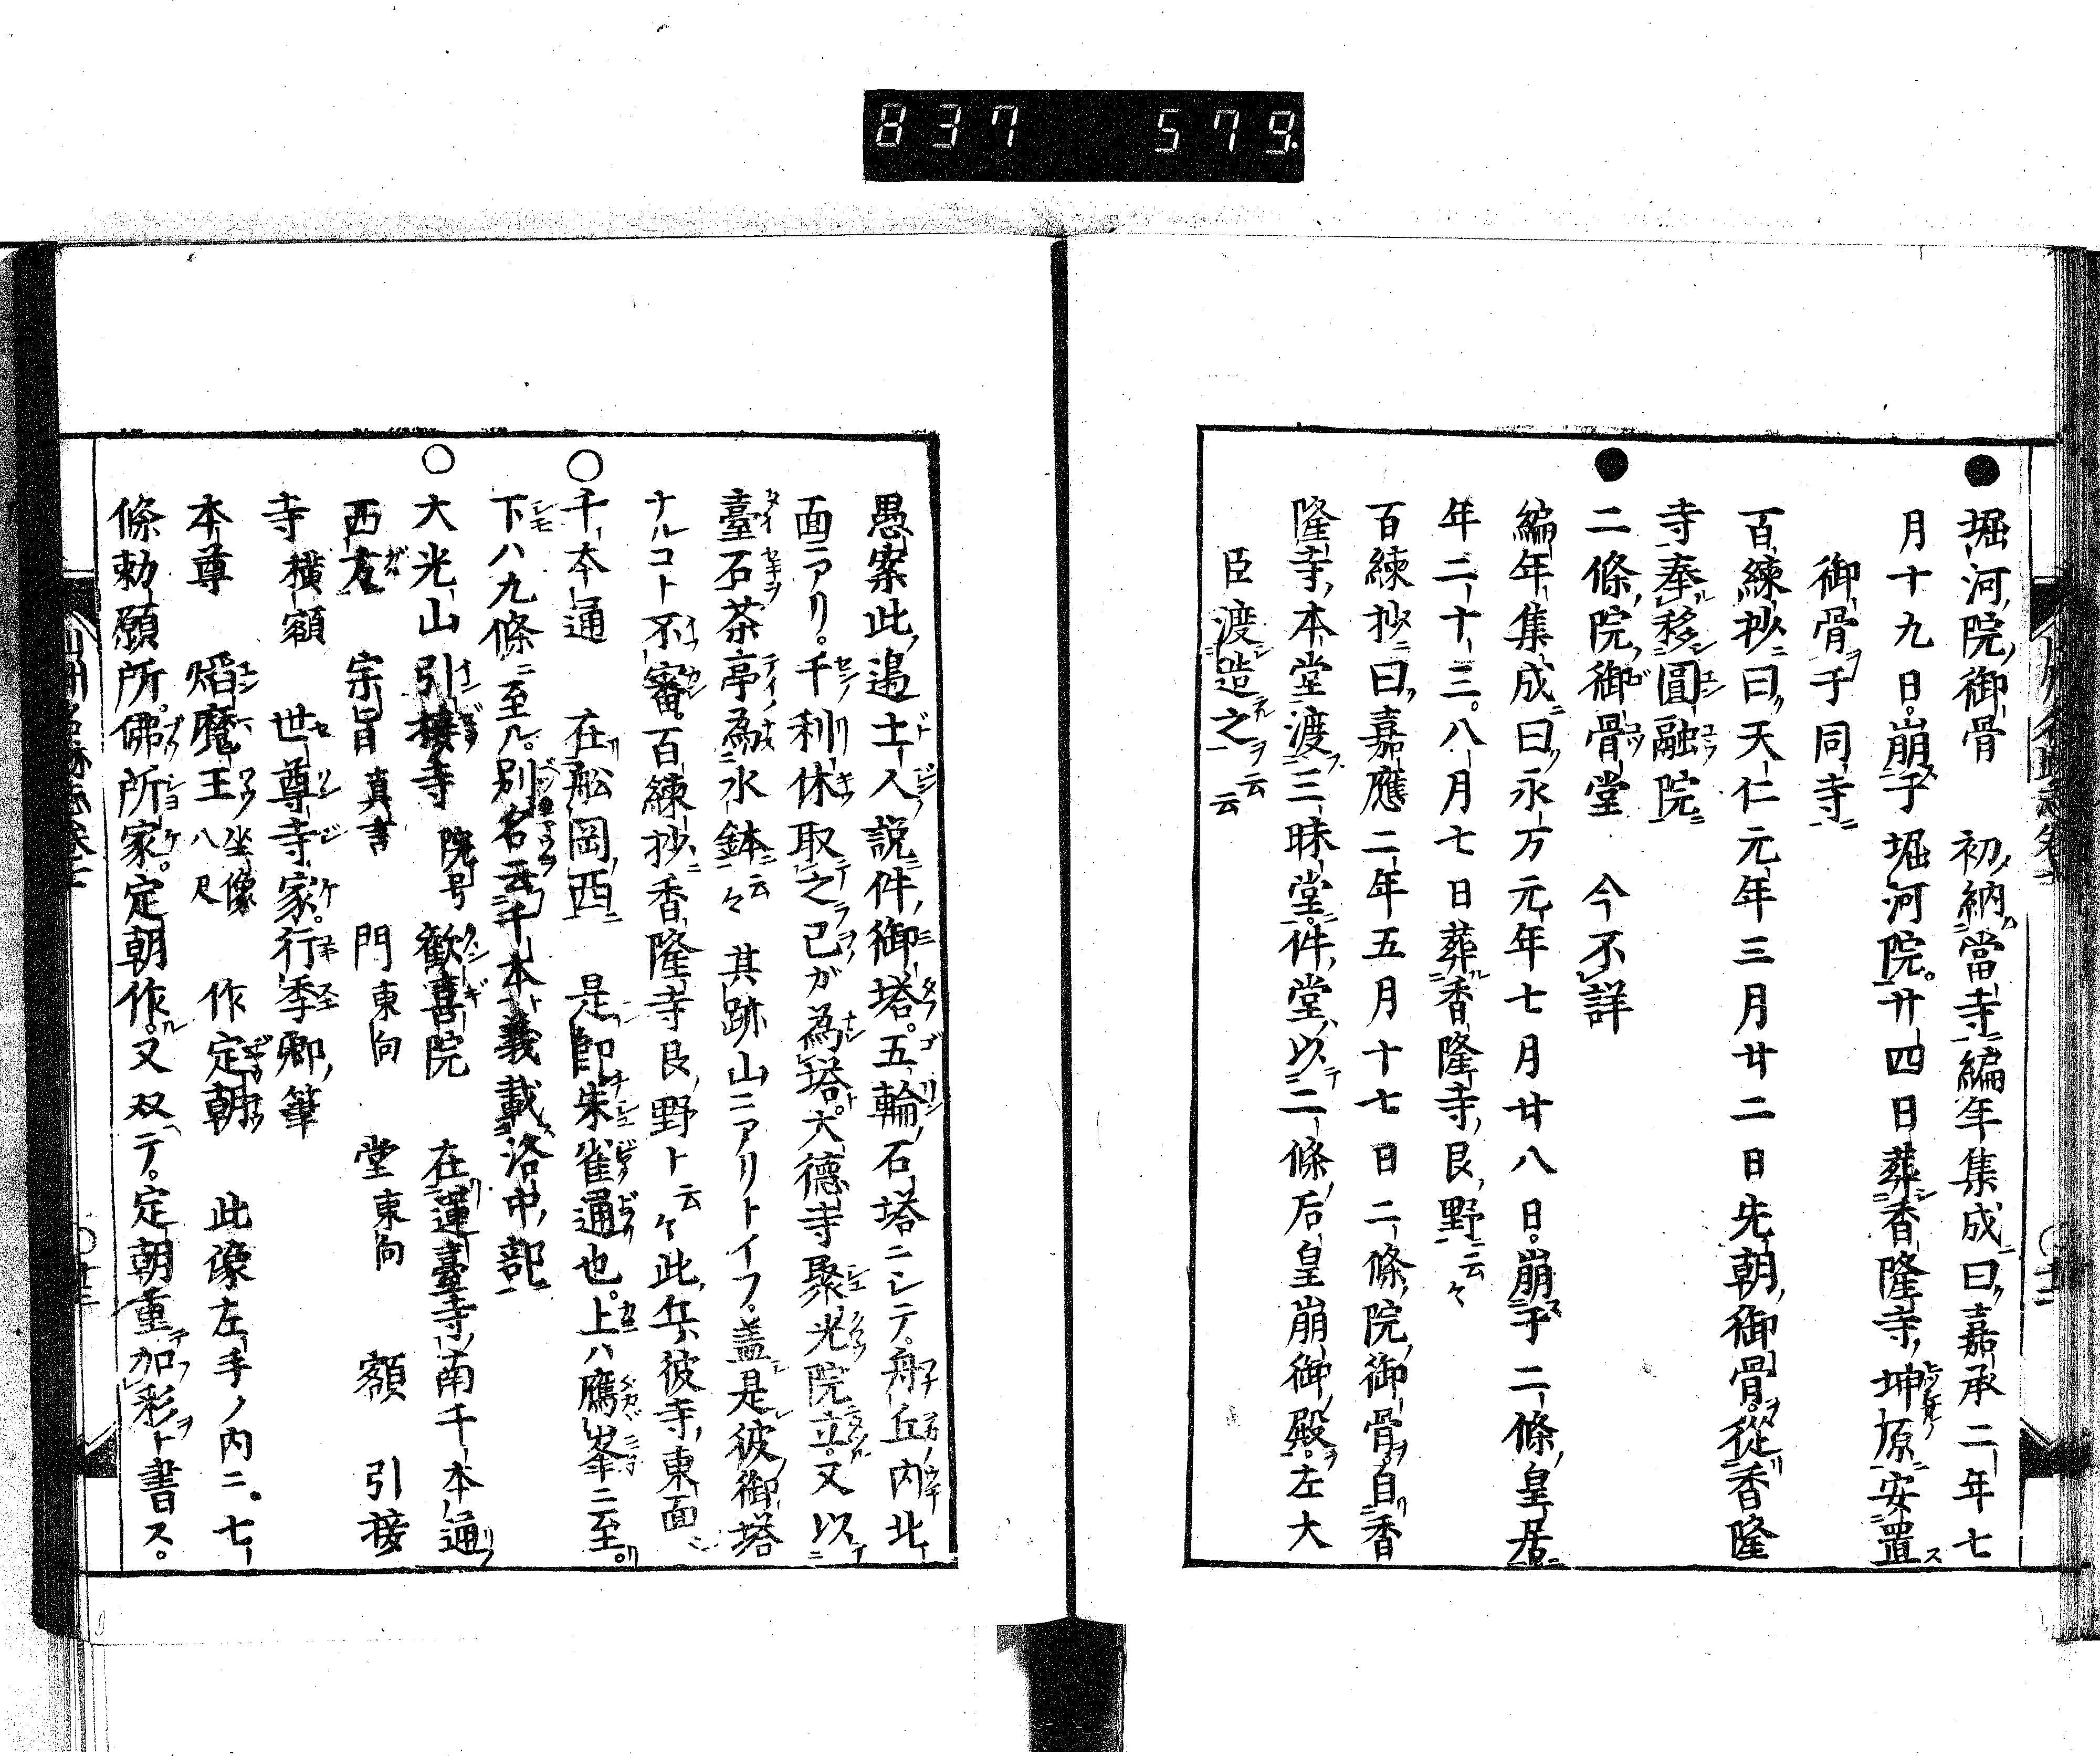 837 579.
●堀河院御骨 初納當寺編年集成曰嘉承二年七
月十九日。崩于堀河院。廿四日葬香隆寺坤原安置
御骨于同寺
百練抄曰天仁元年三月廿二日先朝御骨。從香隆
寺奉移圓融院
●二條院御骨堂 今不詳
編年集成曰永万元年七月廿八日。崩于二條皇居
年二十三。八月七日葬香隆寺艮野云々
百練抄曰嘉應二年五月十七日二條院御骨。自香
隆寺本堂渡三昧堂。件堂以二條后皇崩御殿。左大
臣渡造之云云
愚案此邉土人説件御塔。五輪石塔ニシテ。舟丘内北
面ニアリ。千利休取之己が為塔。大德寺聚光院立。又以
臺石茶亭為水鉢云々 其跡山ニアリトイフ。盖是彼御塔
ナルコト不審。百練抄香隆寺艮野ト云々此丘彼寺東面
○千本通 在舩岡西 是卽朱雀通也。上ハ鷹峯ニ至。
下ハ九條ニ至ル。別名云千本義載洛中部
○大光山引接寺 院号歓喜院 在蓮臺寺南千本通
西方 宗旨真書 門東向 堂東向 額 引接
寺横額 世尊寺家。行季卿筆
本尊 焔魔王坐像八尺 作定朝 此像左手ノ内ニ。七
條勅願所。佛所家。定朝作。又双テ。定朝重加彩ト書ス。